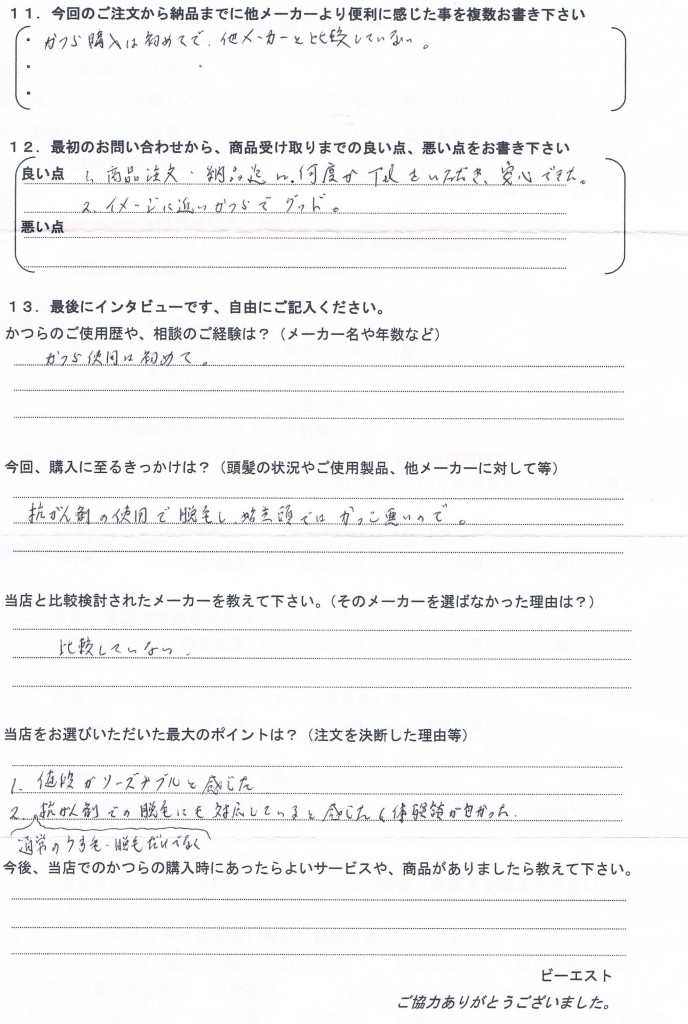 １１．今回のご注文から納品までに他メーカーより便利に感じた事を複数お書き下さい
・かつら購入は初めてで、他メーカーと比較していない。
・
・
１２．最初のお問い合わせから、商品受け取りまでの良い点、悪い点をお書き下さい
良い点 1、商品注文・納品迄に、何度かTelをいただき、安心できた。
2、イメージに近いかつらでグッド。
悪い点
１３．最後にインタビューです、自由にご記入ください。
かつらのご使用歴や、相談のご経験は？（メーカー名や年数など）
かつら使用は初めて。
今回、購入に至るきっかけは？（頭髪の状況やご使用製品、他メーカーに対して等）
抗がん剤の使用で脱毛し、 頭ではかっこ悪いので。
当店と比較検討されたメーカーを教えて下さい。（そのメーカーを選ばなかった理由は？）
比較していない．
当店をお選びいただいた最大のポイントは？（注文を決断した理由等）
1、値段がリーズナブルと感じた
2、抗がん剤での脱毛にも対応していると感じた（体験談が良かった．
通常のうす毛・脱毛だけでなく
今後、当店でのかつらの購入時にあったらよいサービスや、商品がありましたら教えて下さい。
ビーエスト
ご協力ありがとうございました。